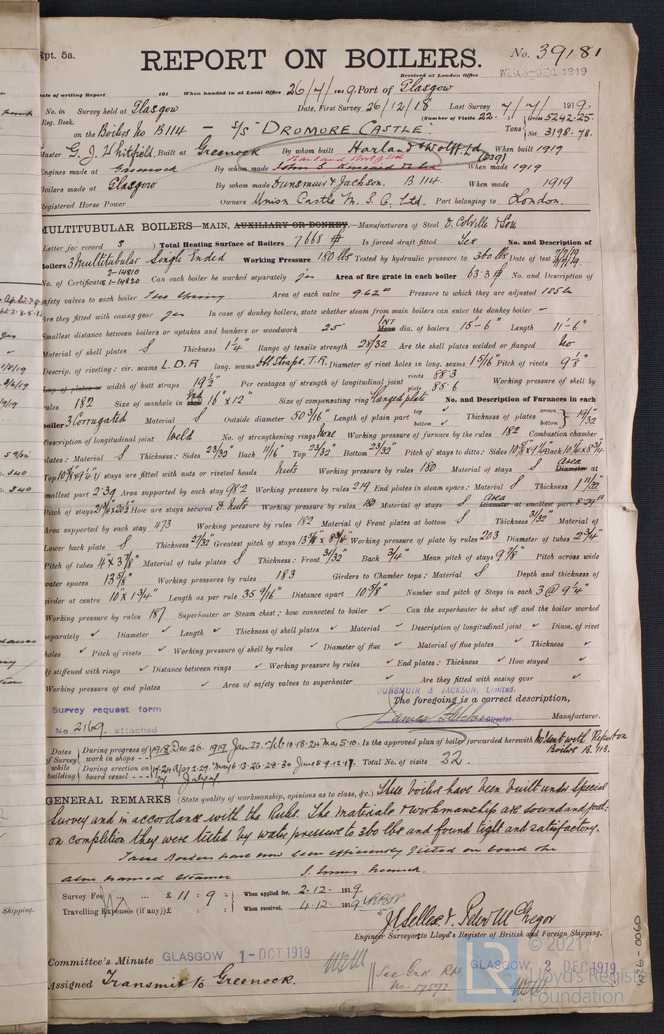 Rpt. 5a.
REPORT ON BOILERS.
No. 39181
Received at London Office WED. 3-DEC. 1919
Date of writing Report 191 When handed in at Local Office 26/7/1919. Port of Glasgow
No. in Survey held at Glasgow Date, First Survey 26/12/18 Last Survey 7/7/1919.
Reg. Book. (Number of Visits 22.)
on the Boilers No B114 - S/S "DROMORE CASTLE" Tons Gross 5242.25. Net 3198.78.
Master G. J. Whitfield. Built at Greenock By whom built Harland & Wolff Ltd When built 1919
Harland & Wolff Ltd
Engines made at Greenock By whom made John G. Kincaid & Co When made 1919
Boilers made at Glasgow By whom made Dunsmuir & Jackson. B.114 When made 1919
Registered Horse Power Owners Union Castle M. S. C. Ltd. Port belonging to London.
MULTITUBULAR BOILERS—MAIN, AUXILIARY OR DONKEY.—Manufacturers of Steel D. Colville & Son
Letter for record S Total Heating Surface of Boilers 7668 # Is forced draft fitted Yes No. and Description of
Boilers 3 Multitubular Single Ended Working Pressure 180 lbs Tested by hydraulic pressure to 360 lbs Date of test
No. of Certificate 14820 Can each boiler be worked separately yes Area of fire grate in each boiler 63.3 # No. and Description of
safety valves to each boiler Two Spring Area of each valve 9.62 Pressure to which they are adjusted 185 lb
Are they fitted with easing gear yes In case of donkey boilers, state whether steam from main boilers can enter the donkey boiler —
Smallest distance between boilers or uptakes and bunkers or woodwork 25" Int dia. of boilers 15'-6" Length 11'-6"
Material of shell plates S Thickness 1¼" Range of tensile strength 28/32 Are the shell plates welded or flanged No
Descrip. of riveting: cir. seams L.D.R long. seams Dbl Straps. T.R. Diameter of rivet holes in long. seams 1 5/16" Pitch of rivets 9⅛"
Lap of plates or width of butt straps 19½" Per centages of strength of longitudinal joint rivets 88.3 plate 85.6 Working pressure of shell by
rules 182 Size of manhole in End 16" x 12" Size of compensating ring Flanged plate No. and Description of Furnaces in each
boiler 3 Corrugated Material S Outside diameter 50 3/16" Length of plain part top bottom Thickness of plates crown bottom 19/32"
Description of longitudinal joint Weld No. of strengthening rings None Working pressure of furnace by the rules 182 Combustion chamber
plates: Material S Thickness: Sides 23/32" Back 11/16" Top 23/32" Bottom 23/32" Pitch of stays to ditto: Sides Back
Top If stays are fitted with nuts or riveted heads Nuts Working pressure by rules 180 Material of stays S Area Diameter at
smallest part 2.39 Area supported by each stay 98.2 Working pressure by rules 219 End plates in steam space: Material S Thickness 1 11/32"
Pitch of stays How are stays secured D. Nuts Working pressure by rules 180 Material of stays S Area Diameter at smallest part 8.29"
Area supported by each stay 473 Working pressure by rules 182 Material of Front plates at bottom S Thickness Material of
Lower back plate S Thickness 27/32" Greatest pitch of stays Working pressure of plate by rules 203 Diameter of tubes 2¾"
Pitch of tubes 4" x 3⅞" Material of tube plates S Thickness: Front Back ¾" Mean pitch of stays 9⅞" Pitch across wide
water spaces 13⅝" Working pressures by rules 183 Girders to Chamber tops: Material S Depth and thickness of
girder at centre 10" x 1¾" Length as per rule 35 9/16" Distance apart 10⅜" Number and pitch of Stays in each 3 @ 9¼"
Working pressure by rules 187 Superheater or Steam chest: how connected to boiler ✓ Can the superheater be shut off and the boiler worked
separately ✓ Diameter ✓ Length ✓ Thickness of shell plates ✓ Material ✓ Description of longitudinal joint ✓ Diam. of rivet
holes ✓ Pitch of rivets ✓ Working pressure of shell by rules ✓ Diameter of flue ✓ Material of flue plates ✓ Thickness ✓
If stiffened with rings ✓ Distance between rings ✓ Working pressure by rules ✓ End plates: Thickness ✓ How stayed ✓
Working pressure of end plates ✓ Area of safety valves to superheater ✓ Are they fitted with easing gear ✓
DUNSMUIR & JACKSON, Limited.
The foregoing is a correct description,
Director. Manufacturer.
Survey request form
No 2169. attached
Dates of Survey while building
During progress of work in shops - - 1918 Dec 26. 1919 Jan 22. Feb 10.18.24 Mar 5.10. Is the approved plan of boiler forwarded herewith No Sent with Report on Boiler B.113.
During erection on board vessel - - - Total No. of visits 22.
GENERAL REMARKS (State quality of workmanship, opinions as to class, &c.) These boilers have been built under Special
Survey and in accordance with the Rules. The materials & workmanship are sound and good:
on completion they were tested by water pressure to 360 lbs and found tight and satisfactory.
These Boilers have now been efficiently fitted on board the
above named steamer
Survey Fee ... £ 11 : 9 : When applied for, 2.12.1919.
Travelling Expenses (if any) £ : : When received, 4.12.1919
Peter McGregor
Engineer Surveyor to Lloyd's Register of British and Foreign Shipping.
Committee's Minute GLASGOW 1-OCT 1919
GLASGOW 2 DEC 1919
Assigned Transmit to Greenock.
See Grk Rpt No. 17572
W26-0060
Shipping.
© 2021
Lloyd's Register
Foundation